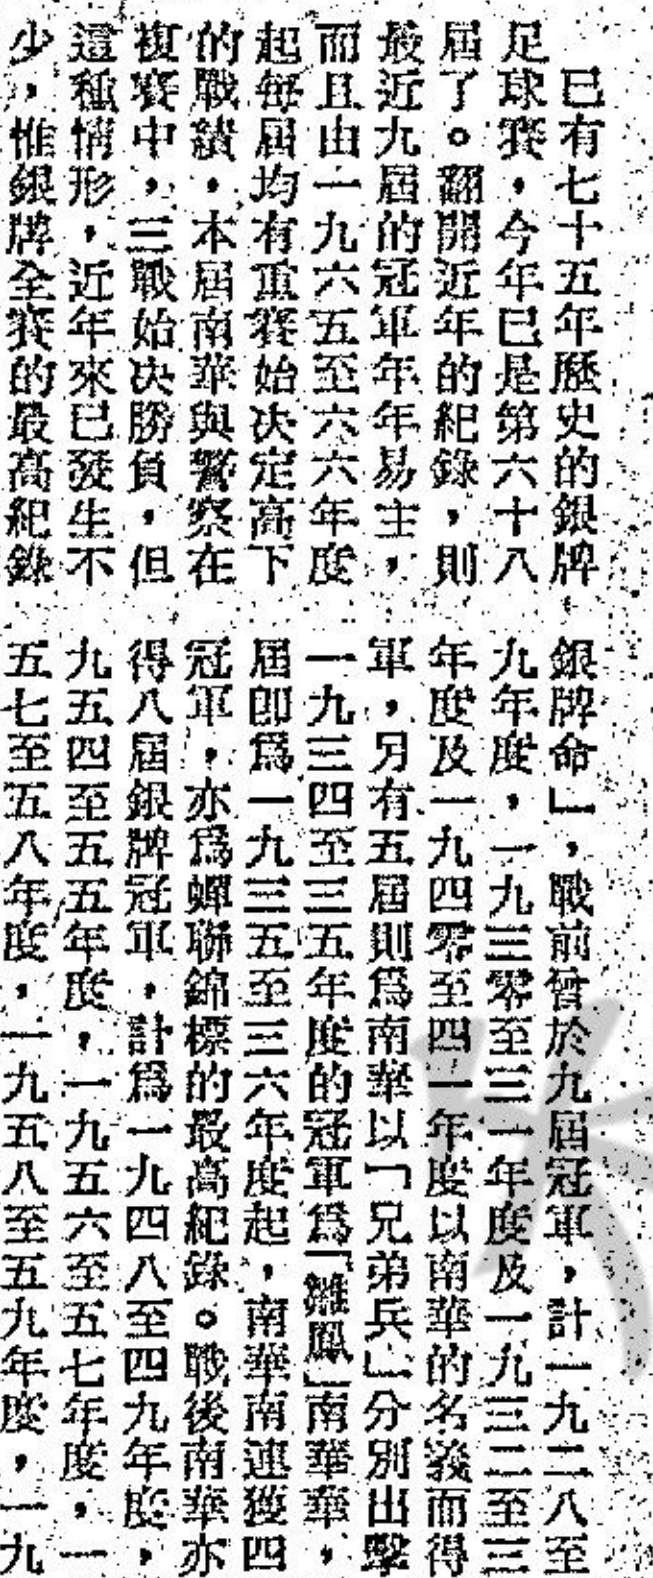 已有七十五年歷史的銀牌
足球賽，今年已是第六十八
屆了。翻開近年的紀錄，則
最近九屆的冠軍年年易主，
而且由一九六五至六六年度
起每屆均有重賽始决定高下
的戰績，本屆南華與警察在
複賽中，三戰始决勝負，但
這種情形，近年來已發生不
少，惟銀牌全賽的最高紀錄
銀牌命」，戰前曾於九屆冠軍，計一九二八至
九年度，一九三零至三一年度及一九三二至三
年度及一九四零至四一年度以南華的名義而得
軍，另有五屆則爲南華以「兄弟兵」分別出擊
一九三四至三五年度的冠軍爲「雛鳳」南華華，
屆卽爲一九三五至三六年度起，南華南連獲四
冠軍，亦爲蟬聯錦標的最高紀錄。戰後南華亦
得八屆銀牌冠軍，計爲一九四八至四九年度，
九五四至五五年度，一九五六至五七年度，一
五七至五八年度，一九五八至五九年度，一九